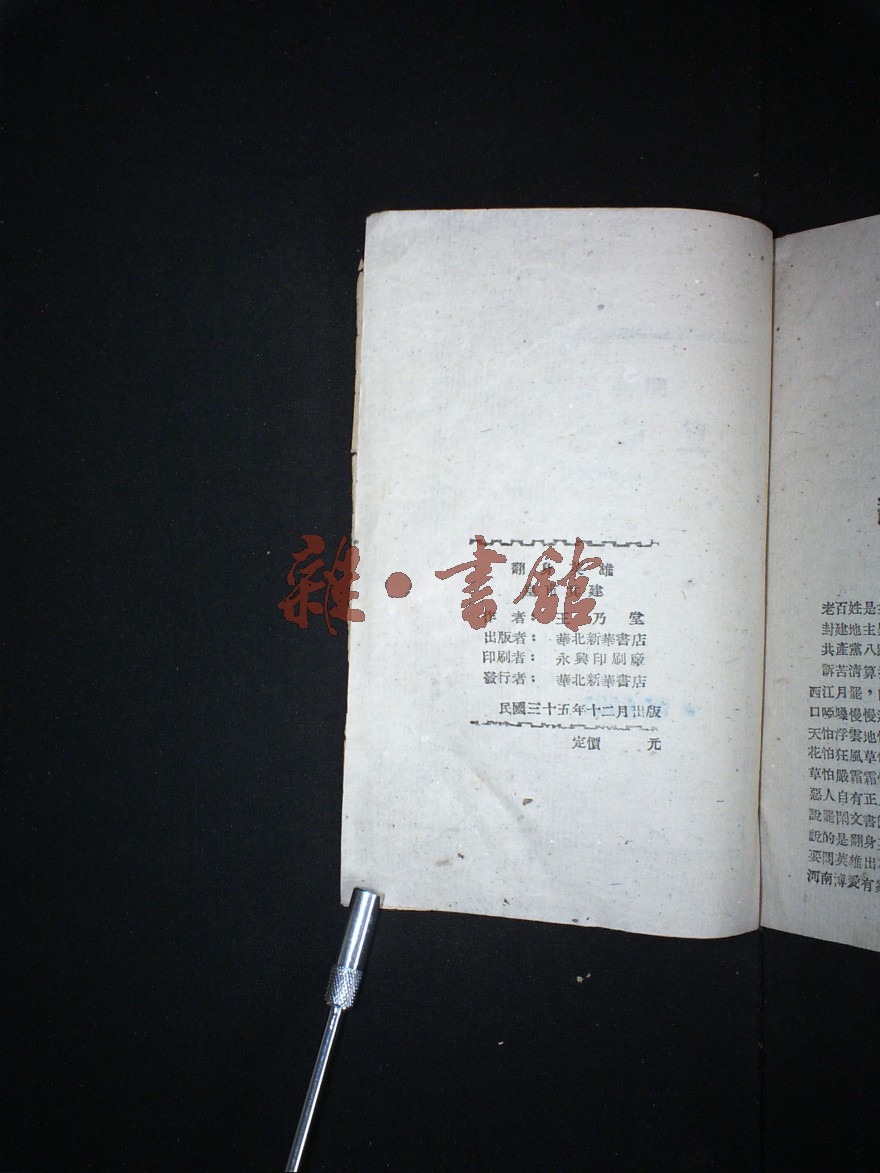 雜·書館
翻身英雄
建
作者：王乃堂
出版者：華北新華書店
印刷者：永興印刷廠
發行者：華北新華書店
民國三十五年十二月出版
定價　元
老百姓是
封建地主是
共產黨八
訴苦清算
西江月罷，
口啞嗓慢慢
天怕浮雲地
花怕狂風草
草怕嚴霜霜
惡人自有正
說罷閑文書
說的是翻身
要問英雄出
河南博愛有